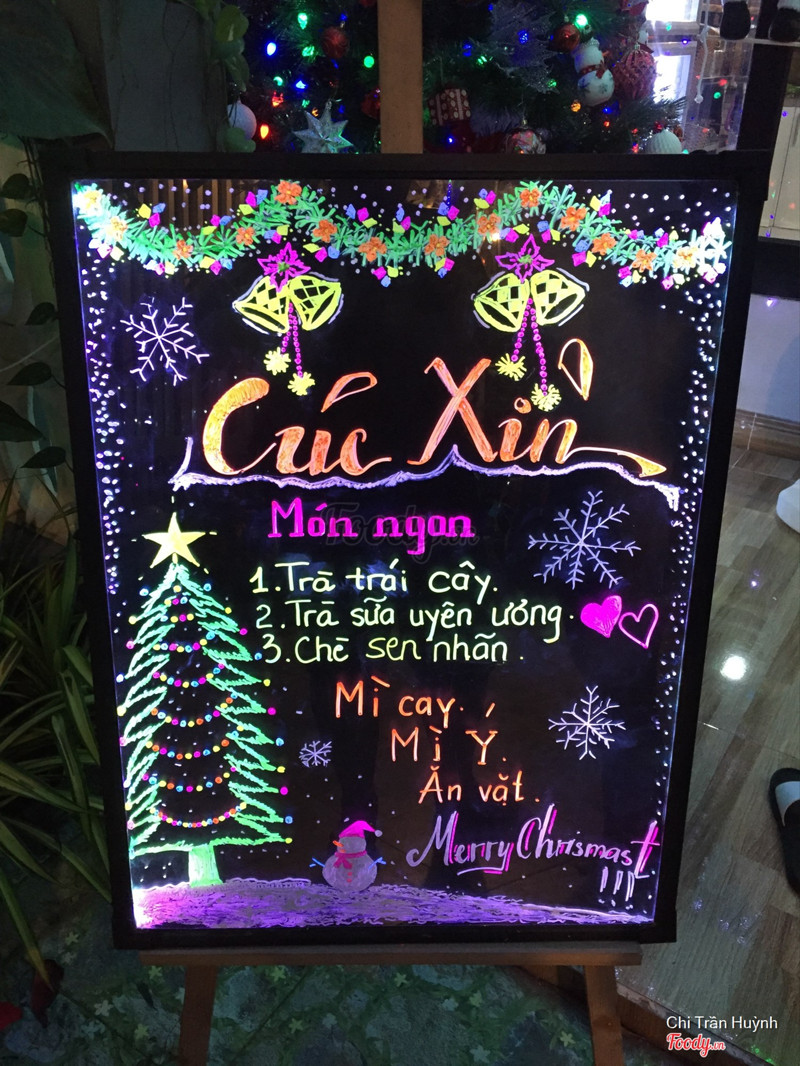 Cúc Xỉn
Món ngon
1. Trà trái cây.
2. Trà sữa uyên ương.
3. Chè sen nhãn.
Mì cay.
Mì Ý.
Ăn vặt.
Merry Chrismast
!!!
Foody.vn
Chi Trần Huỳnh
Foody.vn